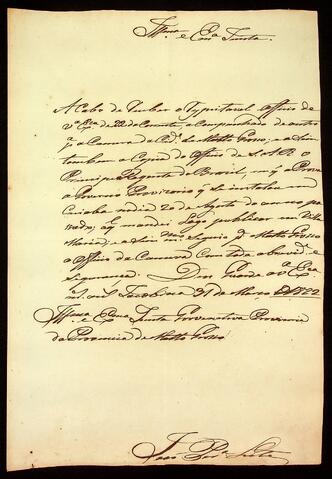 Illma. e Exma. Junta.
Acabo de receber o respeitavel Officio de
V.ª Exª de 22 do Corrente, acompanhado de outro
pª a Camara da Cidª de Matto Grosso, e a Sim
tambem a Copia do Officio de S. A. R. o
Principe Regente do Brasil, em q̃ a Prova
o Governo Provizorio q̃ se instalou em
Cuiaba no dia 20 de Agosto do anno pas
sado, q̃ mandei Logo publicar em Villa
Maria, e a Sim mmº Seguio pª Matto Grosso
o Officio da Camara Com toda a brevidª e
Segurança. Deos Guarde a Vª Exª
m. an. Jacobina 31 de Março de 1822
Illma e Exma Junta Governativa Provizoria
da Provincia de Matto Grosso
João Perª Leite